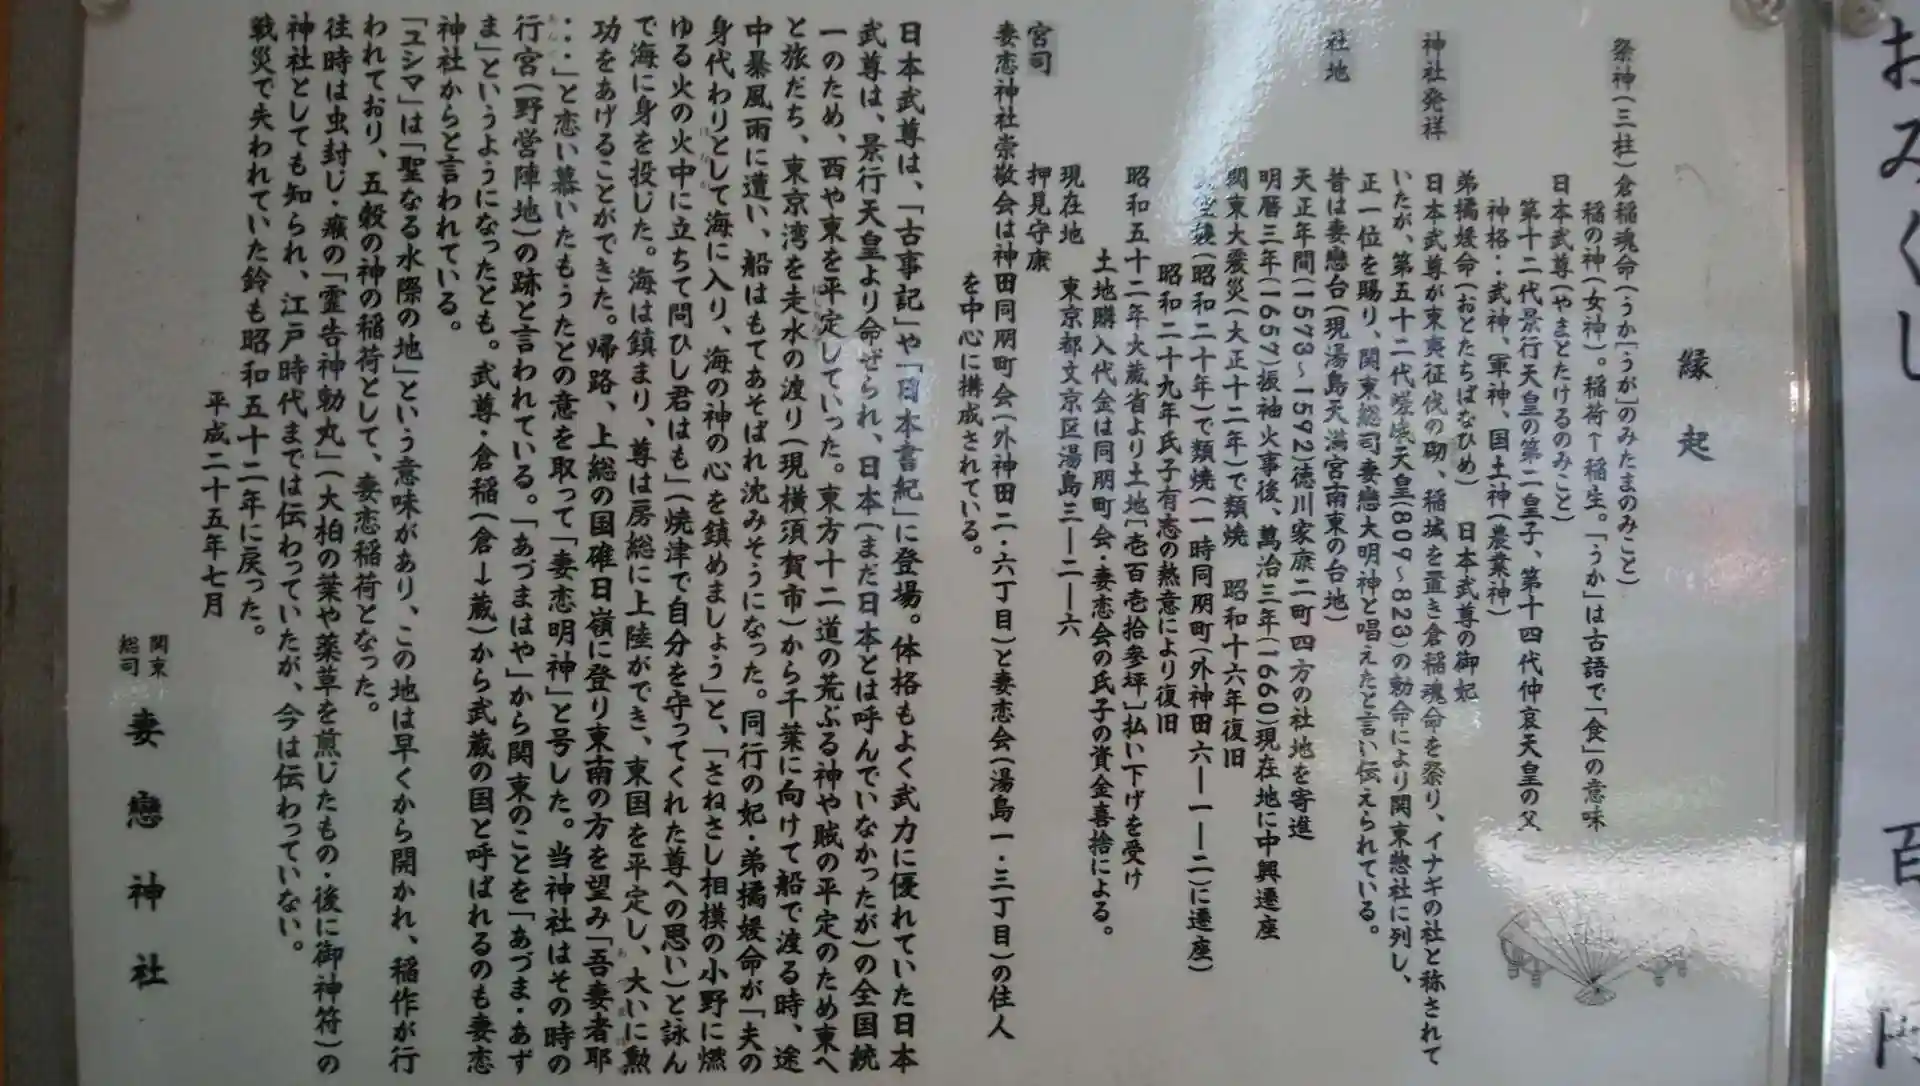 縁起
祭神(三柱)倉稲魂命(うか「うが」のみたまのみこと)
稲の神(女神)。稲荷↑稲生。「うか」は古語で「食」の意味
日本武尊(やまとたけるのみこと)
第十二代景行天皇の第二皇子、第十四代仲哀天皇の父
神格‥武神、軍神、国土神(農業神)
弟橘媛命(おとたちばなひめ) 日本武尊の御妃
神社発祥 日本武尊が東夷征伐の砌、稲城を置き倉稲魂命を祭り、イナギの社と称されて
いたが、第五十二代嵯峨天皇(809~823)の勅命により関東惣社に列し、
正一位を賜り、関東総司妻戀大明神と唱えたと言い伝えられている。
社地 昔は妻戀台(現湯島天満宮南東の台地)
天正年間(1573~1592)徳川家康二町四方の社地を寄進
明暦三年(1657)振袖火事後、萬治三年(1660)現在地に中興遷座
関東大震災(大正十二年)で類焼 昭和十六年復旧
(昭和二十年)で類焼(一時同朋町(外神田六―一―二)に遷座)
昭和二十九年氏子有志の熱意により復旧
昭和五十二年大蔵省より土地[壱百壱拾参坪]払い下げを受け
土地購入代金は同朋町会・妻恋会の氏子の資金喜捨による。
現在地 東京都文京区湯島三―二―六
宮司 押見守康
妻恋神社崇敬会は神田同朋町会(外神田二・六丁目)と妻恋会(湯島一・三丁目)の住人
を中心に構成されている。
日本武尊は、「古事記」や「日本書紀」に登場。体格もよく武力に優れていた日本
武尊は、景行天皇より命ぜられ、日本(まだ日本とは呼んでいなかったが)の全国統
一のため、西や東を平定していった。東方十二道の荒ぶる神や賊の平定のため東へ
と旅だち、東京湾を走水の渡り(現横須賀市)から千葉に向けて船で渡る時、途
中暴風雨に遭い、船はもてあそばれ沈みそうになった。同行の妃・弟橘媛命が「夫の
身代わりとして海に入り、海の神の心を鎮めましょう」と、「さねさし相模の小野に燃
ゆる火の火中に立ちて問ひし君はも」(焼津で自分を守ってくれた尊への思い)と詠ん
で海に身を投じた。海は鎮まり、尊は房総に上陸ができ、東国を平定し、大いに勲
功をあげることができた。帰路、上総の国碓日嶺に登り東南の方を望み「吾妻者耶
・・・」と恋い慕いたもうたとの意を取って「妻恋明神」と号した。当神社はその時の
行宮(野営陣地)の跡と言われている。「あづまはや」から関東のことを「あづま・あず
ま」というようになったとも。武尊・倉稲(倉→蔵)から武蔵の国と呼ばれるのも妻恋
神社からと言われている。
「ユシマ」は「聖なる水際の地」という意味があり、この地は早くから開かれ、稲作が行
われており、五穀の神の稲荷として、妻恋稲荷となった。
往時は虫封じ・癪の「霊告神勅丸」(大柏の葉や薬草を煎じたもの・後に御神符)の
神社としても知られ、江戸時代までは伝わっていたが、今は伝わっていない。
戦災で失われていた鈴も昭和五十二年に戻った。
平成二十五年七月
関東
総司 妻戀神社
おみくじ
百 円